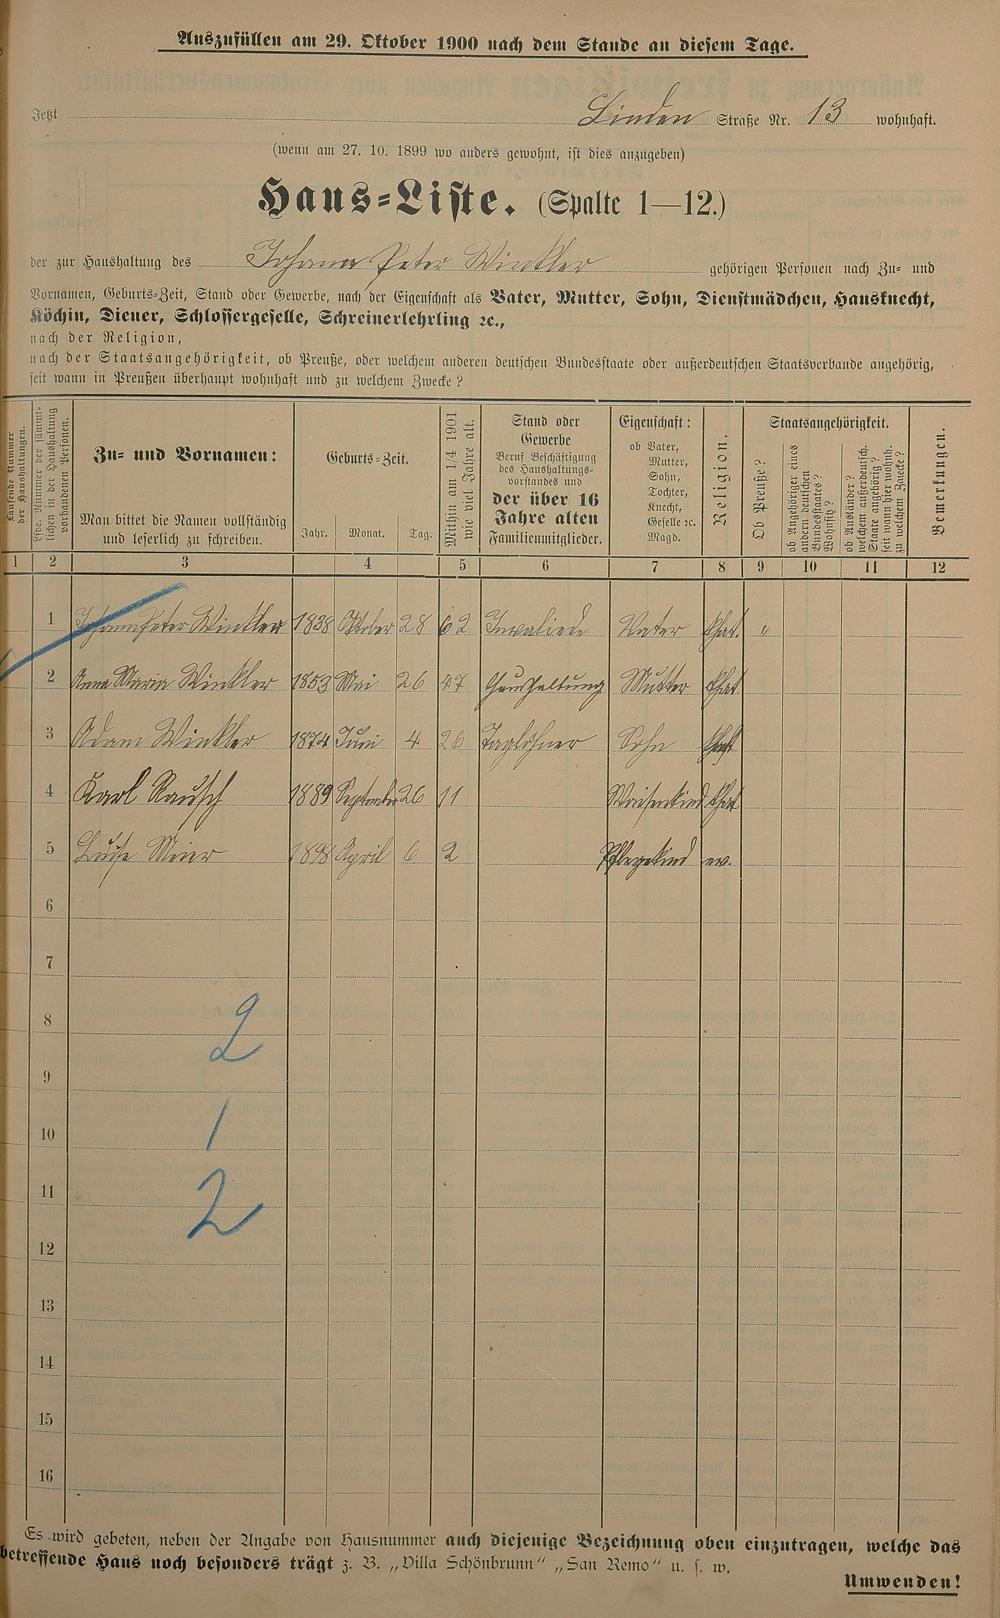 Auszufüllen am 29. Oktober 1900 nach dem Stande an diesem Tage.
Jetzt Linden Straße Nr. 13 wohnhaft.
(wenn am 27. 10. 1899 wo anders gewohnt, ist dies anzugeben)
Haus=Liste. (Spalte 1—12.)
der zur Haushaltung des Johann Peter Winkler gehörigen Personen nach Zu= und
Vornamen, Geburts=Zeit, Stand oder Gewerbe, nach der Eigenschaft als Vater, Mutter, Sohn, Dienstmädchen, Hausknecht,
Köchin, Diener, Schlossergeselle, Schreinerlehrling ꝛc.,
nach der Religion,
nach der Staatsangehörigkeit, ob Preuße, oder welchem anderen deutschen Bundesstaate oder außerdeutschen Staatsverbande angehörig,
seit wann in Preußen überhaupt wohnhaft und zu welchem Zwecke?
Laufende Nummer
der Haushaltungen.
Lfde. Nummer der sämmt-
lichen in der Haushaltung
vorhandenen Personen.
Zu= und Vornamen:
Man bittet die Namen vollständig
und leserlich zu schreiben.
Geburts=Zeit.
Jahr. Monat. Tag.
Mithin am 1/4 1901
wie viel Jahre alt.
Stand oder
Gewerbe
Beruf Beschäftigung
des Haushaltungs-
vorstandes und
der über 16
Jahre alten
Familienmitglieder.
Eigenschaft:
ob Vater,
Mutter,
Sohn,
Tochter,
Knecht,
Geselle ꝛc.
Magd.
Religion.
Staatsangehörigkeit.
Ob Preuße?
ob Angehöriger eines
andern deutschen
Bundesstaates?
Wohnsitz?
ob Ausländer?
welchem außerdeutsch.
Staate angehörig?
seit wann hier wohnh.
zu welchem Zwecke?
Bemerkungen.
1 2 3 4 5 6 7 8 9 10 11 12
1 Johann Peter Winkler 1838 Oktober 28 62 Invaliede Vater khat. "
2 Anna Maria Winkler 1853 Mai 26 47 Haushaltung Mutter khat.
3 Adam Winkler 1874 Juni 4 26 Taglöhner Sohn khat
4 Karl Rausch 1889 September 26 11 Waisenkind khat
5 Luise Meier 1898 April 6 2 Pflegekind ev.
6
7
8
2
9
10
1
11
2
12
13
14
15
16
Es wird gebeten, neben der Angabe von Hausnummer auch diejenige Bezeichnung oben einzutragen, welche das
betreffende Haus noch besonders trägt z. B. „Villa Schönbrunn" „San Remo" u. s. w.
Umwenden!